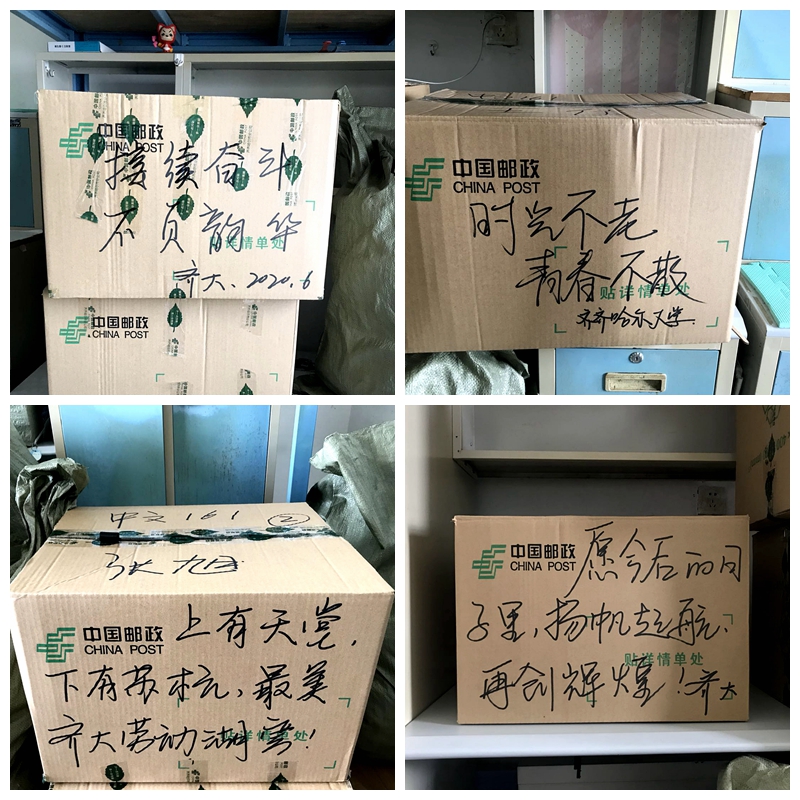 中国邮政
CHINA POST
接续奋斗
不负韶华
贴详情单处
齐大、2020.6
中国邮政
CHINA POST
中国邮政
CHINA POST
时光不老
青春不散
贴详情单处
齐齐哈尔大学.
中文161 ②
张旭
中国邮政
CHINA POST
上有天堂,
下有苏杭,最美
齐大劳动湖弯!
贴详情单处
中国邮政
CHINA POST
愿今后的日
子里,扬帆起航、
贴详情单处
再创辉煌!齐大